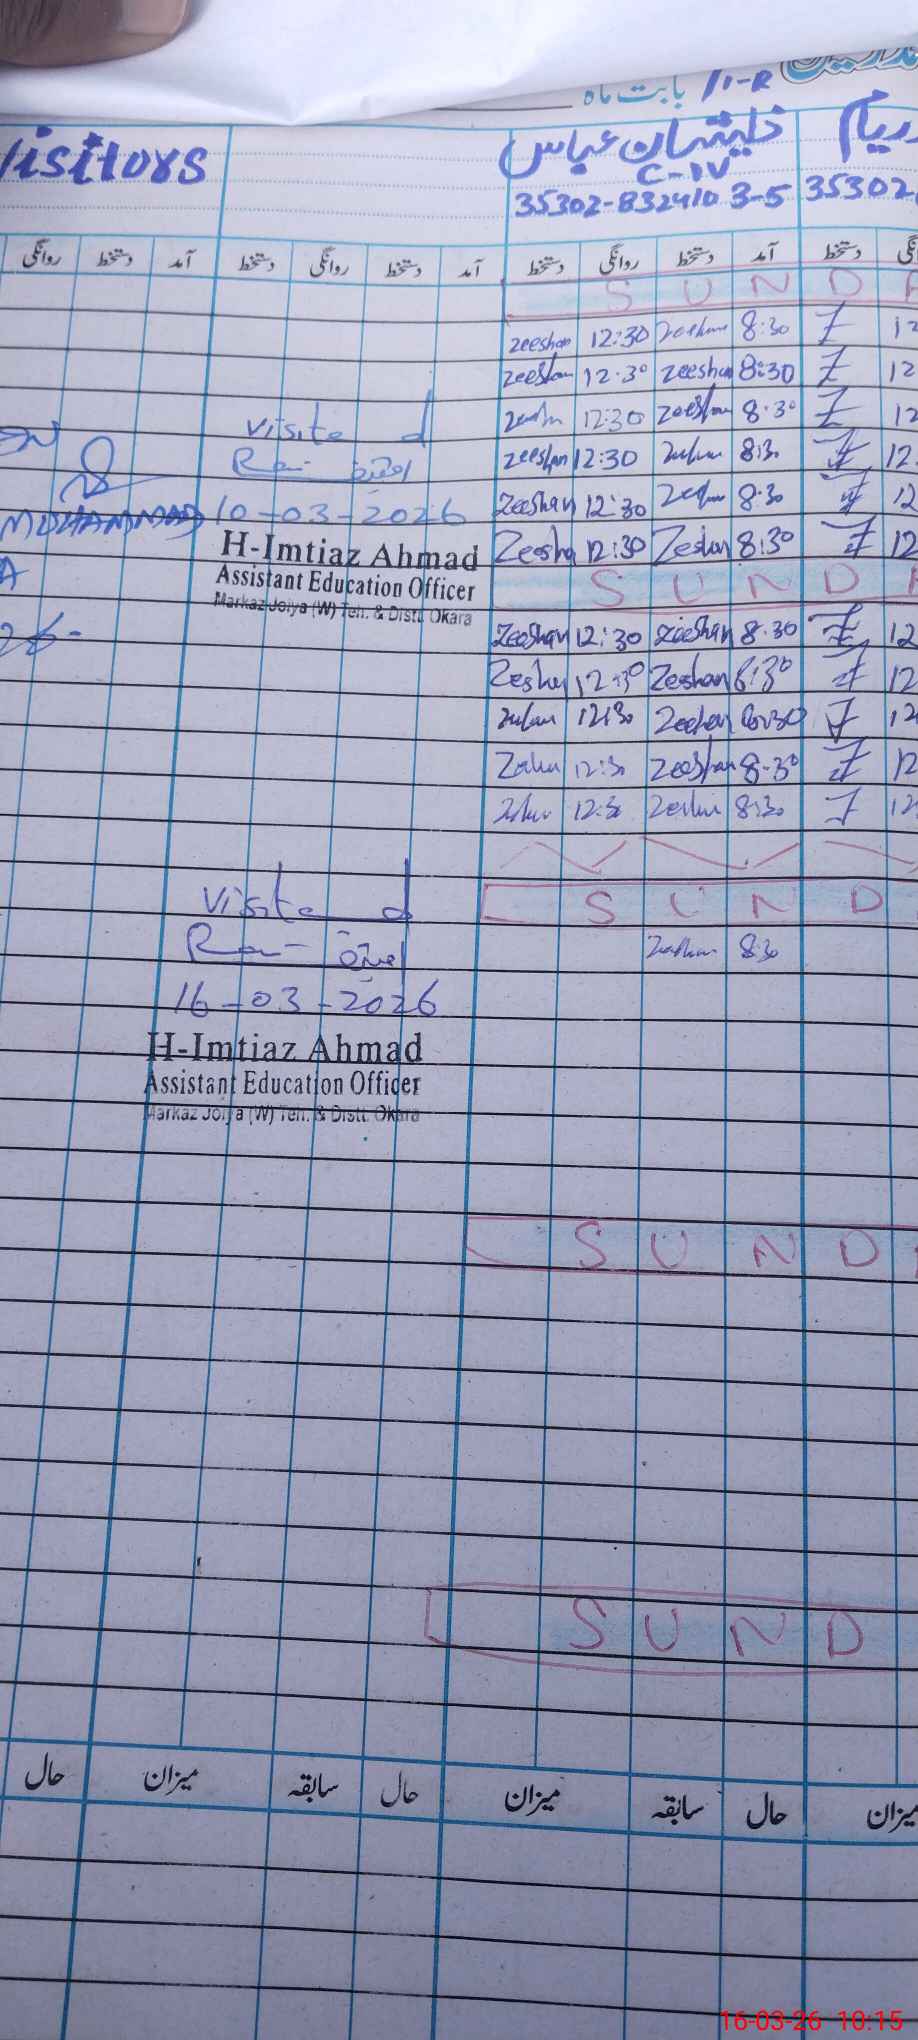 بابت ماہ 11-R
Visitors
ذیشان عباس
C-IV
35302-8324103-5
35302
روانگی دستخط آمد دستخط روانگی دستخط آمد دستخط روانگی دستخط آمد دستخط
S U N D
zeeshan 12:30 zeeshan 8:30 12
zeeshan 12:30 zeeshan 8:30 12
12:30 zeeshan 8:30 12
zeeshan 12:30 8:30 12
Zeeshan 12:30 8:30 12
Zeesha 12:30 Zeshan 8:30 12
S U N D
Zeeshan 12:30 zieshan 8:30 12
12:30 Zeeshan 8:30 12
12:30 Zeeshan 8:30 12
12:30 Zeeshan 8:30 12
12:30 8:30 12
S U N D
8:30
S U N D
S U N D
Visited
10-03-2026
H-Imtiaz Ahmad
Assistant Education Officer
Markaz Joiya (W) Teh. & Distt. Okara
MUHAMMAD
A
26-
Visited
16-03-2026
H-Imtiaz Ahmad
Assistant Education Officer
Markaz Joiya (W) Teh. & Distt. Okara
حال میزان سابقہ حال میزان سابقہ حال میزان
16-03-26 10:15